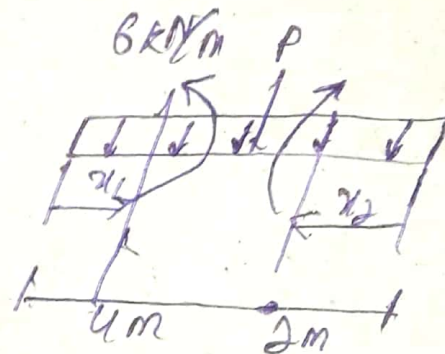 6 kN/m P
x₁ x₂
4m 2m